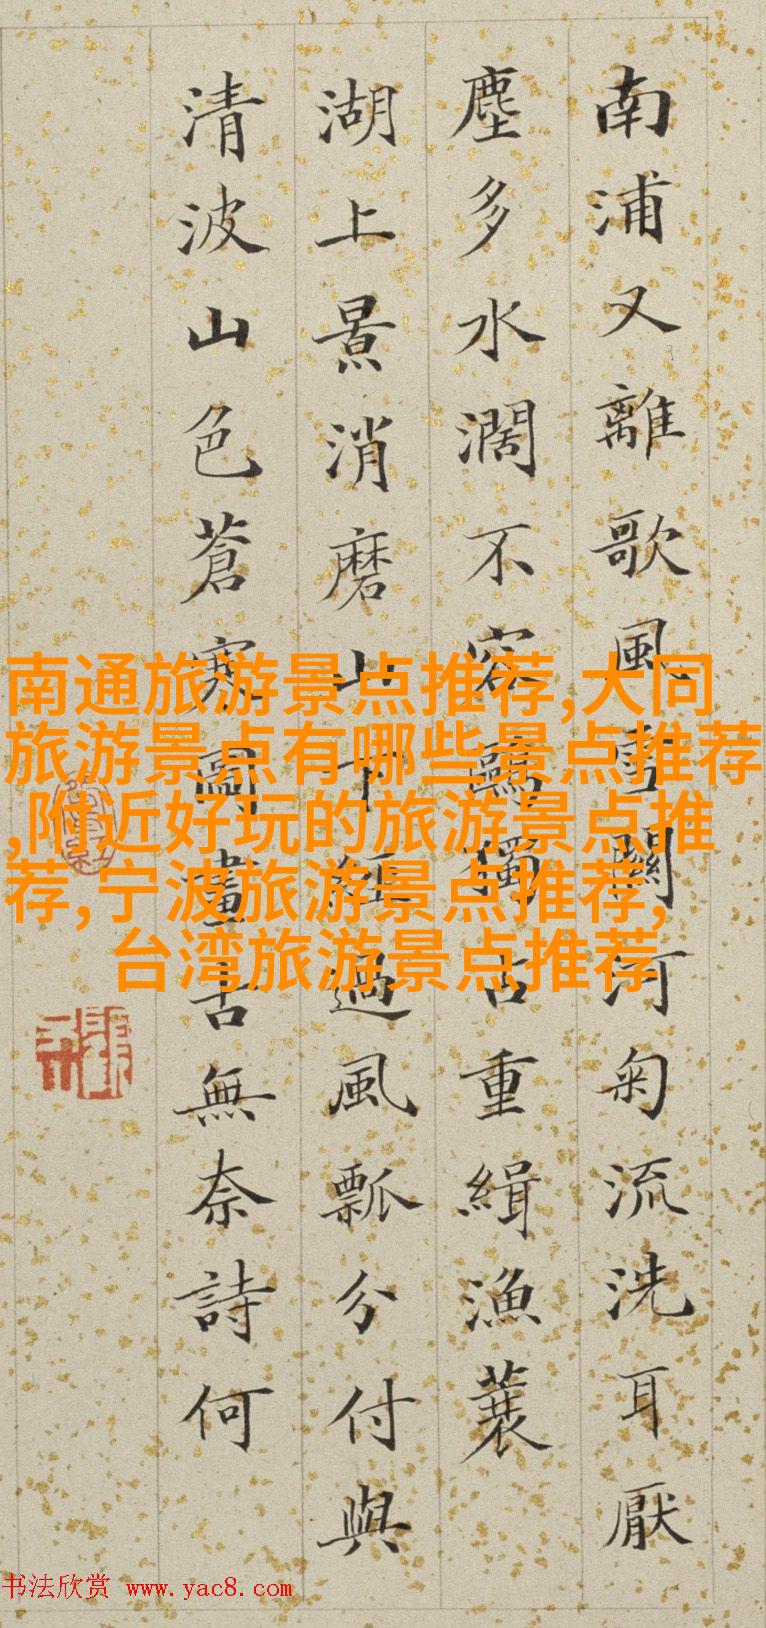 南浦又離歌風雪關河匊流洗耳厭
塵多水濶不容鷗獨占重緝漁蓑
湖上景消磨山經過風瓢分付與
清波山色蒼寒圖畫古無奈詩何
南通旅游景点推荐,大同
旅游景点有哪些景点推荐
,附近好玩的旅游景点推
荐,宁波旅游景点推荐,
台湾旅游景点推荐
书法欣赏 www.yac8.com